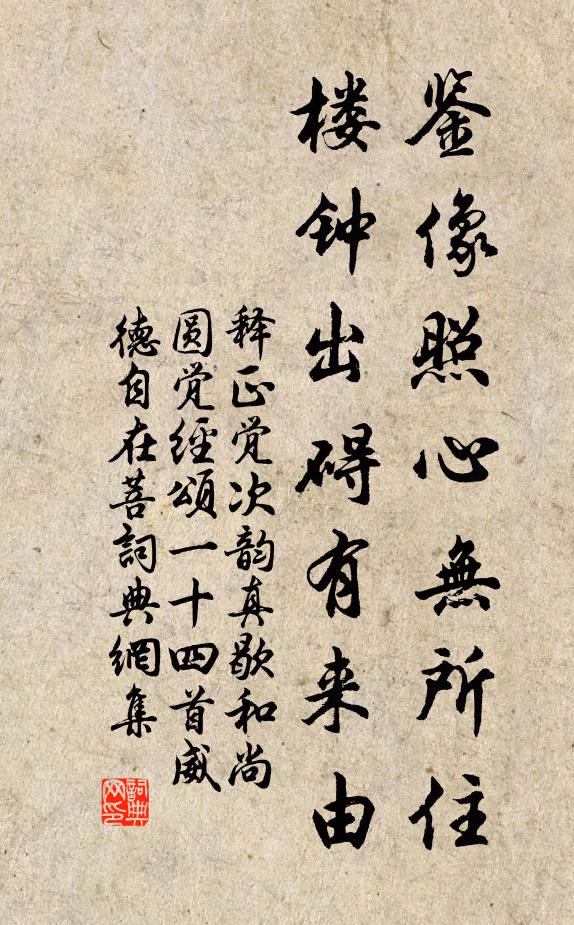 鉴像照心無所住
楼钟出碍有来由
释正觉次韵真歇和尚
圆觉经颂一十四首威
德自在菩詞典網集
詞典
网印